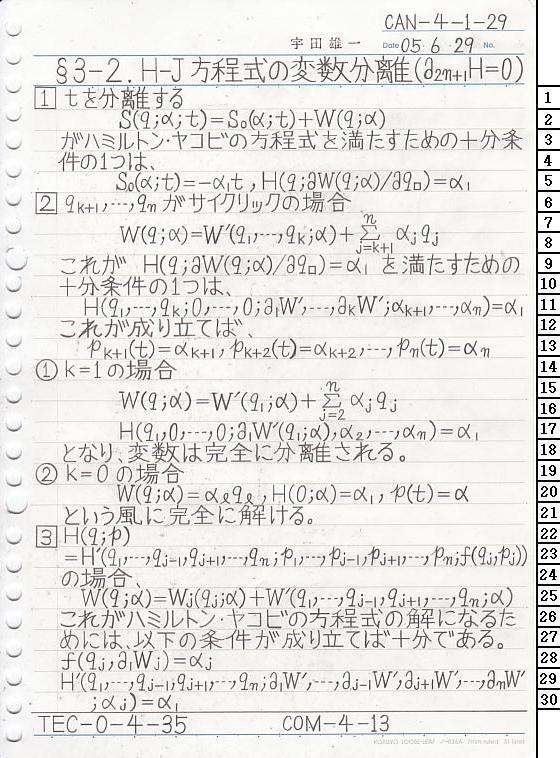 CAN-4-1-29
宇田雄一 Date 05.6.29 No.
§3-2. H-J方程式の変数分離(∂₂ₙ₊₁H=0)
1 tを分離する
S(q;α;t)=S₀(α;t)+W(q;α)
がハミルトン・ヤコビの方程式を満たすための十分条
件の1つは、
S₀(α;t)=-α₁t, H(q;∂W(q;α)/∂q□)=α₁
2 qₖ₊₁,…,qₙがサイクリックの場合
W(q;α)=W'(q₁,…,qₖ;α)+Σⁿⱼ₌ₖ₊₁ αⱼqⱼ
これが H(q;∂W(q;α)/∂q□)=α₁を満たすための
十分条件の1つは、
H(q₁,…,qₖ;0,…,0;∂₁W',…,∂ₖW';αₖ₊₁,…,αₙ)=α₁
これが成り立てば、
pₖ₊₁(t)=αₖ₊₁, pₖ₊₂(t)=αₖ₊₂,…,pₙ(t)=αₙ
① k=1の場合
W(q;α)=W'(q₁;α)+Σⁿⱼ₌₂ αⱼqⱼ
H(q₁,0,…,0;∂₁W'(q₁;α),α₂,…,αₙ)=α₁
となり、変数は完全に分離される。
② k=0の場合
W(q;α)=αℓqℓ, H(0;α)=α₁, p(t)=α
という風に完全に解ける。
3 H(q;p)
=H'(q₁,…,qⱼ₋₁,qⱼ₊₁,…,qₙ;p₁,…,pⱼ₋₁,pⱼ₊₁,…,pₙ;f(qⱼ,pⱼ))
の場合、
W(q;α)=Wⱼ(qⱼ;α)+W'(q₁,…,qⱼ₋₁,qⱼ₊₁,…,qₙ;α)
これがハミルトン・ヤコビの方程式の解になるた
めには、以下の条件が成り立てば十分である。
f(qⱼ,∂₁Wⱼ)=αⱼ
H'(q₁,…,qⱼ₋₁,qⱼ₊₁,…,qₙ;∂₁W',…,∂ⱼ₋₁W',∂ⱼ₊₁W',…,∂ₙW'
;αⱼ)=α₁
TEC-0-4-35 COM-4-13
KOKUYO LOOSE-LEAF ノ-836A 7mm ruled 31 lines
1
2
3
4
5
6
7
8
9
10
11
12
13
14
15
16
17
18
19
20
21
22
23
24
25
26
27
28
29
30